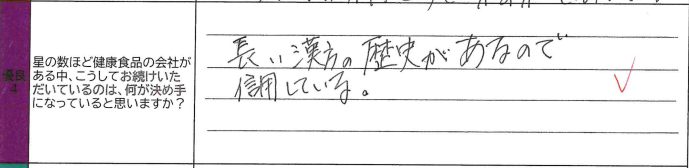 優良
4
星の数ほど健康食品の会社が
ある中、こうしてお続けいた
だいているのは、何が決め手
になっていると思いますか?
長い漢方の歴史があるので
信用している。